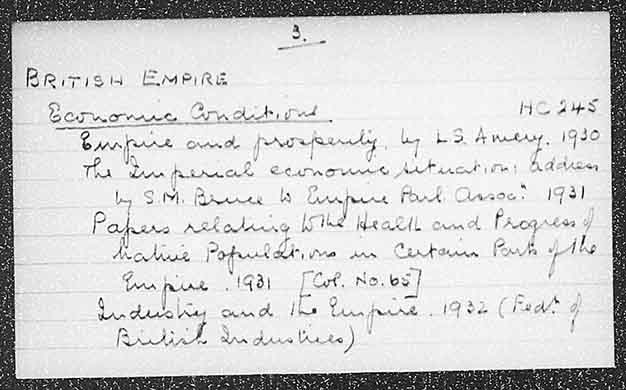 3.
BRITISH EMPIRE
Economic Conditions HC 245
Empire and prosperity, by L.S. Amery. 1930
The Imperial economic situation: address
by S.M. Bruce to Empire Parl. Assocn. 1931
Papers relating to the Health and Progress of
Native Populations in Certain Parts of the
Empire. 1931 [Col. No. 65]
Industry and the Empire. 1932 (Fedn. of
British Industries)